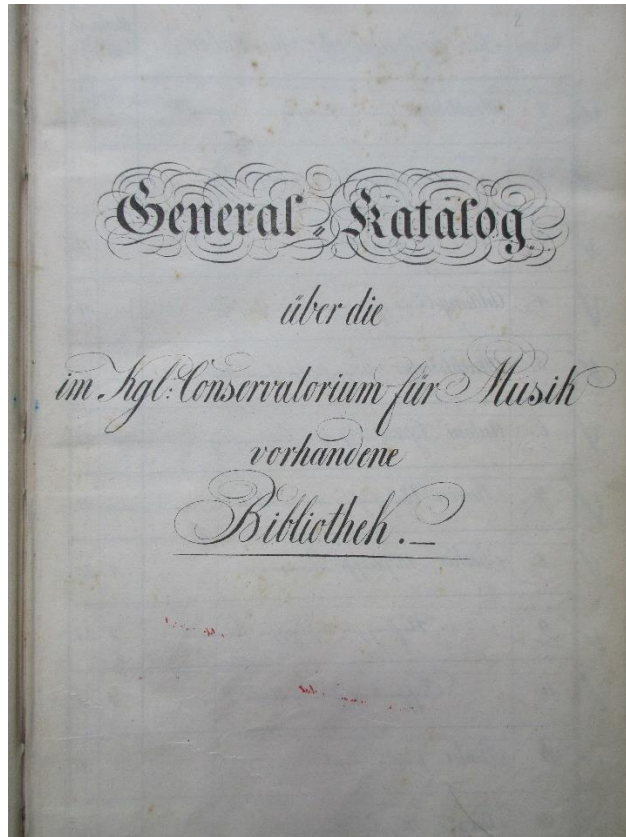 General-Katalog.
über die
im Kgl: Conservatorium für Musik
vorhandene
Bibliothek.—